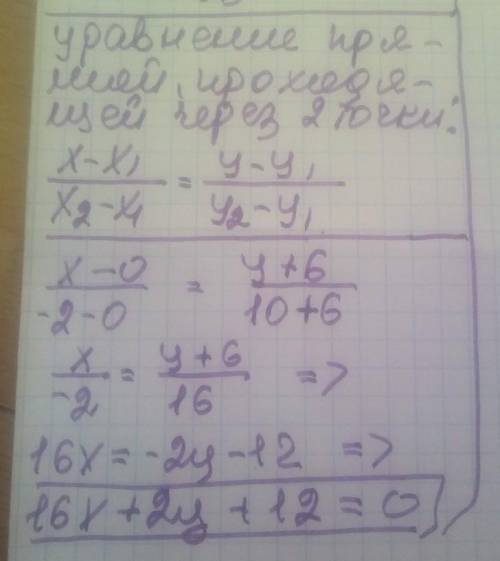 уравнение пря-
мой, проходя-
щей через 2 точки:
x-x₁ / x₂-x₁ = y-y₁ / y₂-y₁
x-0 / -2-0 = y+6 / 10+6
x / -2 = y+6 / 16 =>
16x = -2y -12 =>
16x+2y+12=0